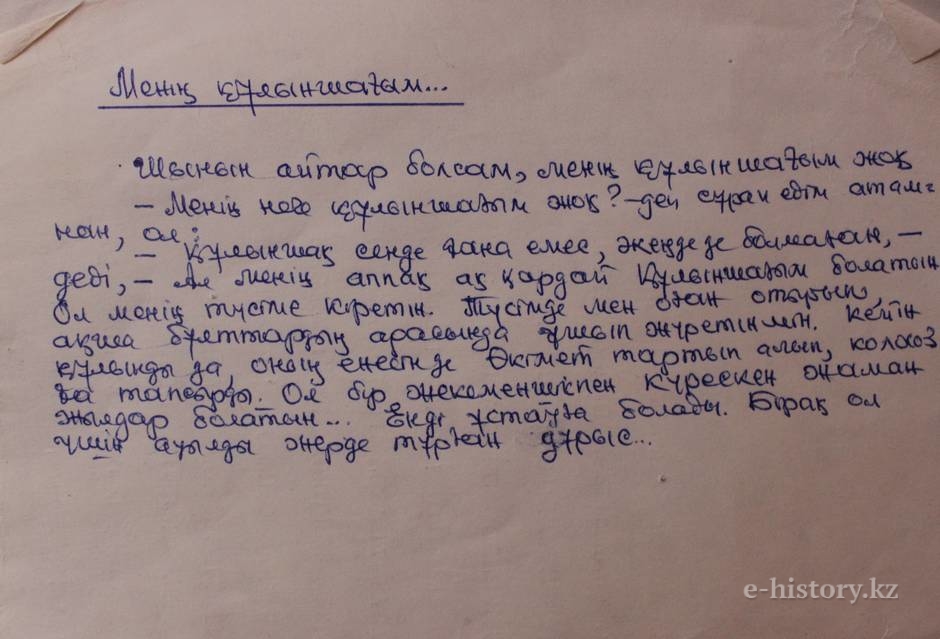 Менің құлыншағым...
Шынын айтар болсам, менің құлыншағым жоқ
– Менің неге құлыншағым жоқ? – деп сұрап едім атам-
нан, ол:
– Құлыншақ сенде ғана емес, әкеңде де болмаған, –
деді, – Ал менің аппақ ақ қардай құлыншағым болатын
Ол менің түсіме кіретін. Түсімде мен оған отырып,
ақша бұлттардың арасында ұшып жүретінмін. Кейін
құлынды да, оның енесін де Өкімет тартып алып, колхоз
ға тапсырды. Ол бір жекеменшікпен күрескен жаман
жылдар болатын... Енді ұстауға болады. Бірақ ол
үшін ауылды жерде тұрған дұрыс...
e-history.kz